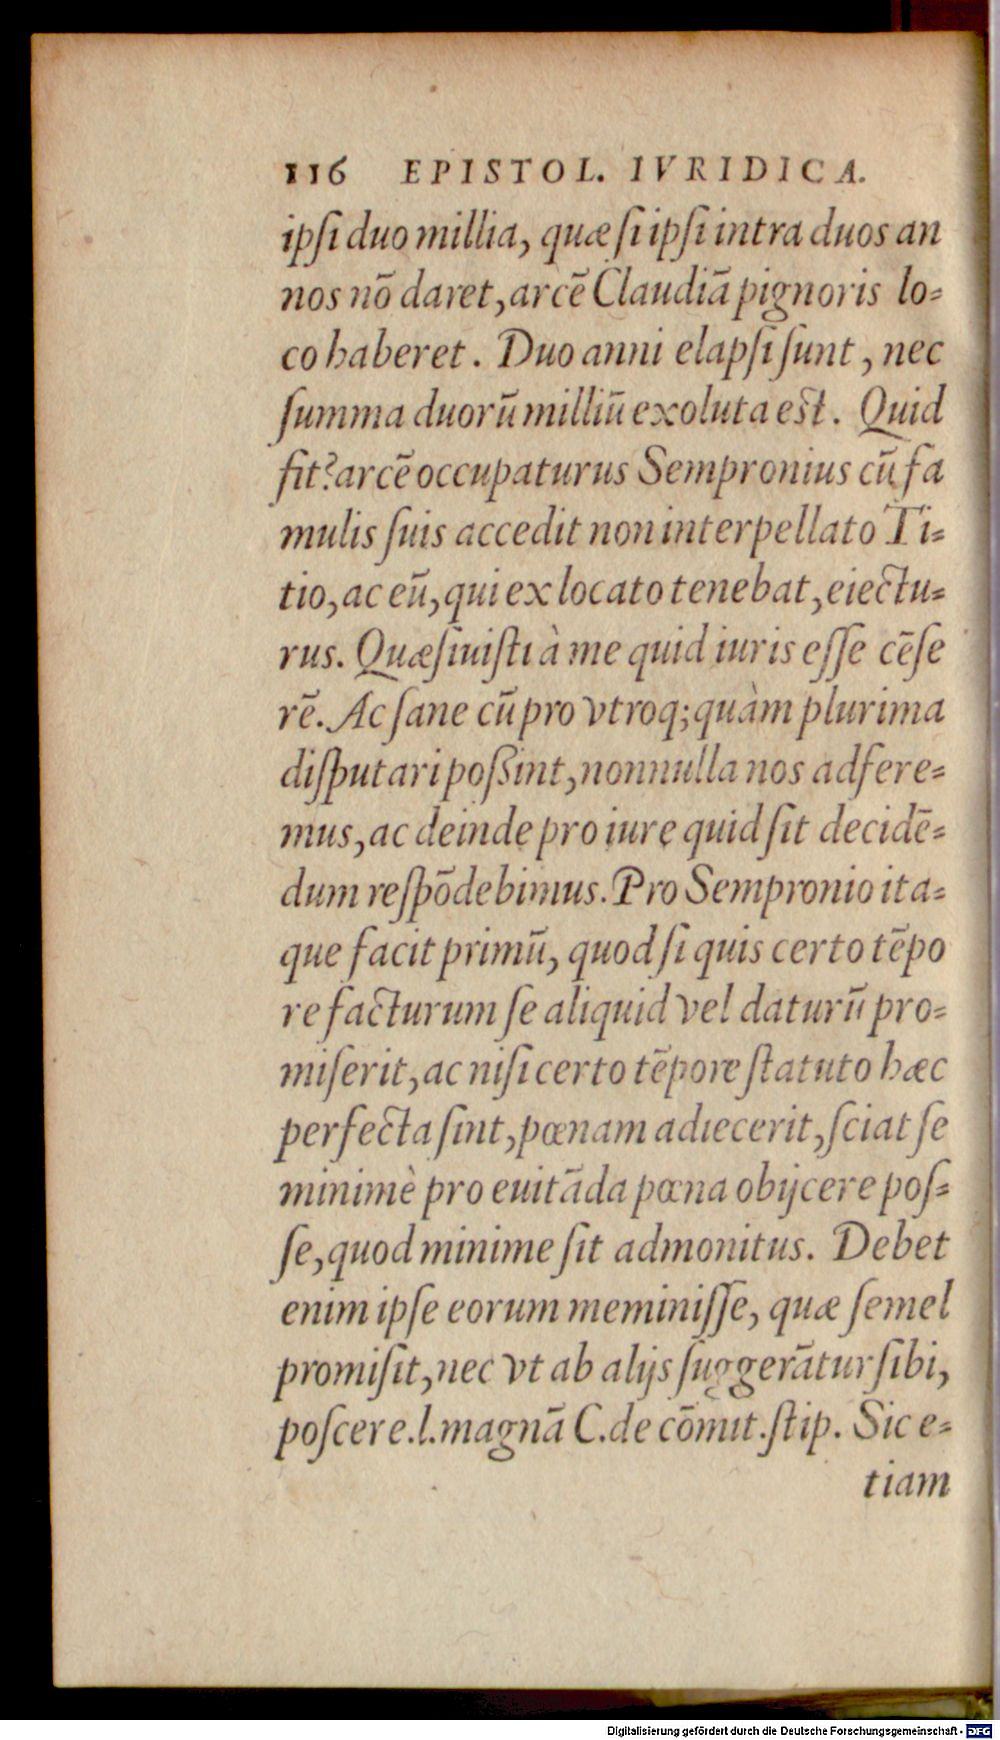 116 EPISTOL. IVRIDICA.
ipſi duo millia, quæ ſi ipſi intra duos an
nos nō daret, arcē Claudiā pignoris lo=
co haberet. Duo anni elapſi ſunt, nec
ſumma duorū milliū exoluta eſt. Quid
fit? arcē occupaturus Sempronius cū fa
mulis ſuis accedit non interpellato Ti=
tio, ac eū, qui ex locato tenebat, eiectu=
rus. Quæſiuiſti à me quid iuris eſſe cēſe
rē. Ac ſane cū pro vtroq; quàm plurima
diſputari poßint, nonnulla nos adfere=
mus, ac deinde pro iure quid ſit decidē=
dum reſpōdebimus. Pro Sempronio ita=
que facit primū, quod ſi quis certo tēpo
re facturum ſe aliquid vel daturū pro=
miſerit, ac niſi certo tēpore ſtatuto hæc
perfecta ſint, pœnam adiecerit, ſciat ſe
minimè pro euitāda pœna obijcere poſ=
ſe, quod minime ſit admonitus. Debet
enim ipſe eorum meminiſſe, quæ ſemel
promiſit, nec vt ab alijs ſuggerātur ſibi,
poſcere. l. magnā C. de cōmit. ſtip. Sic e=
tiam
Digitalisierung gefördert durch die Deutsche Forschungsgemeinschaft - DFG